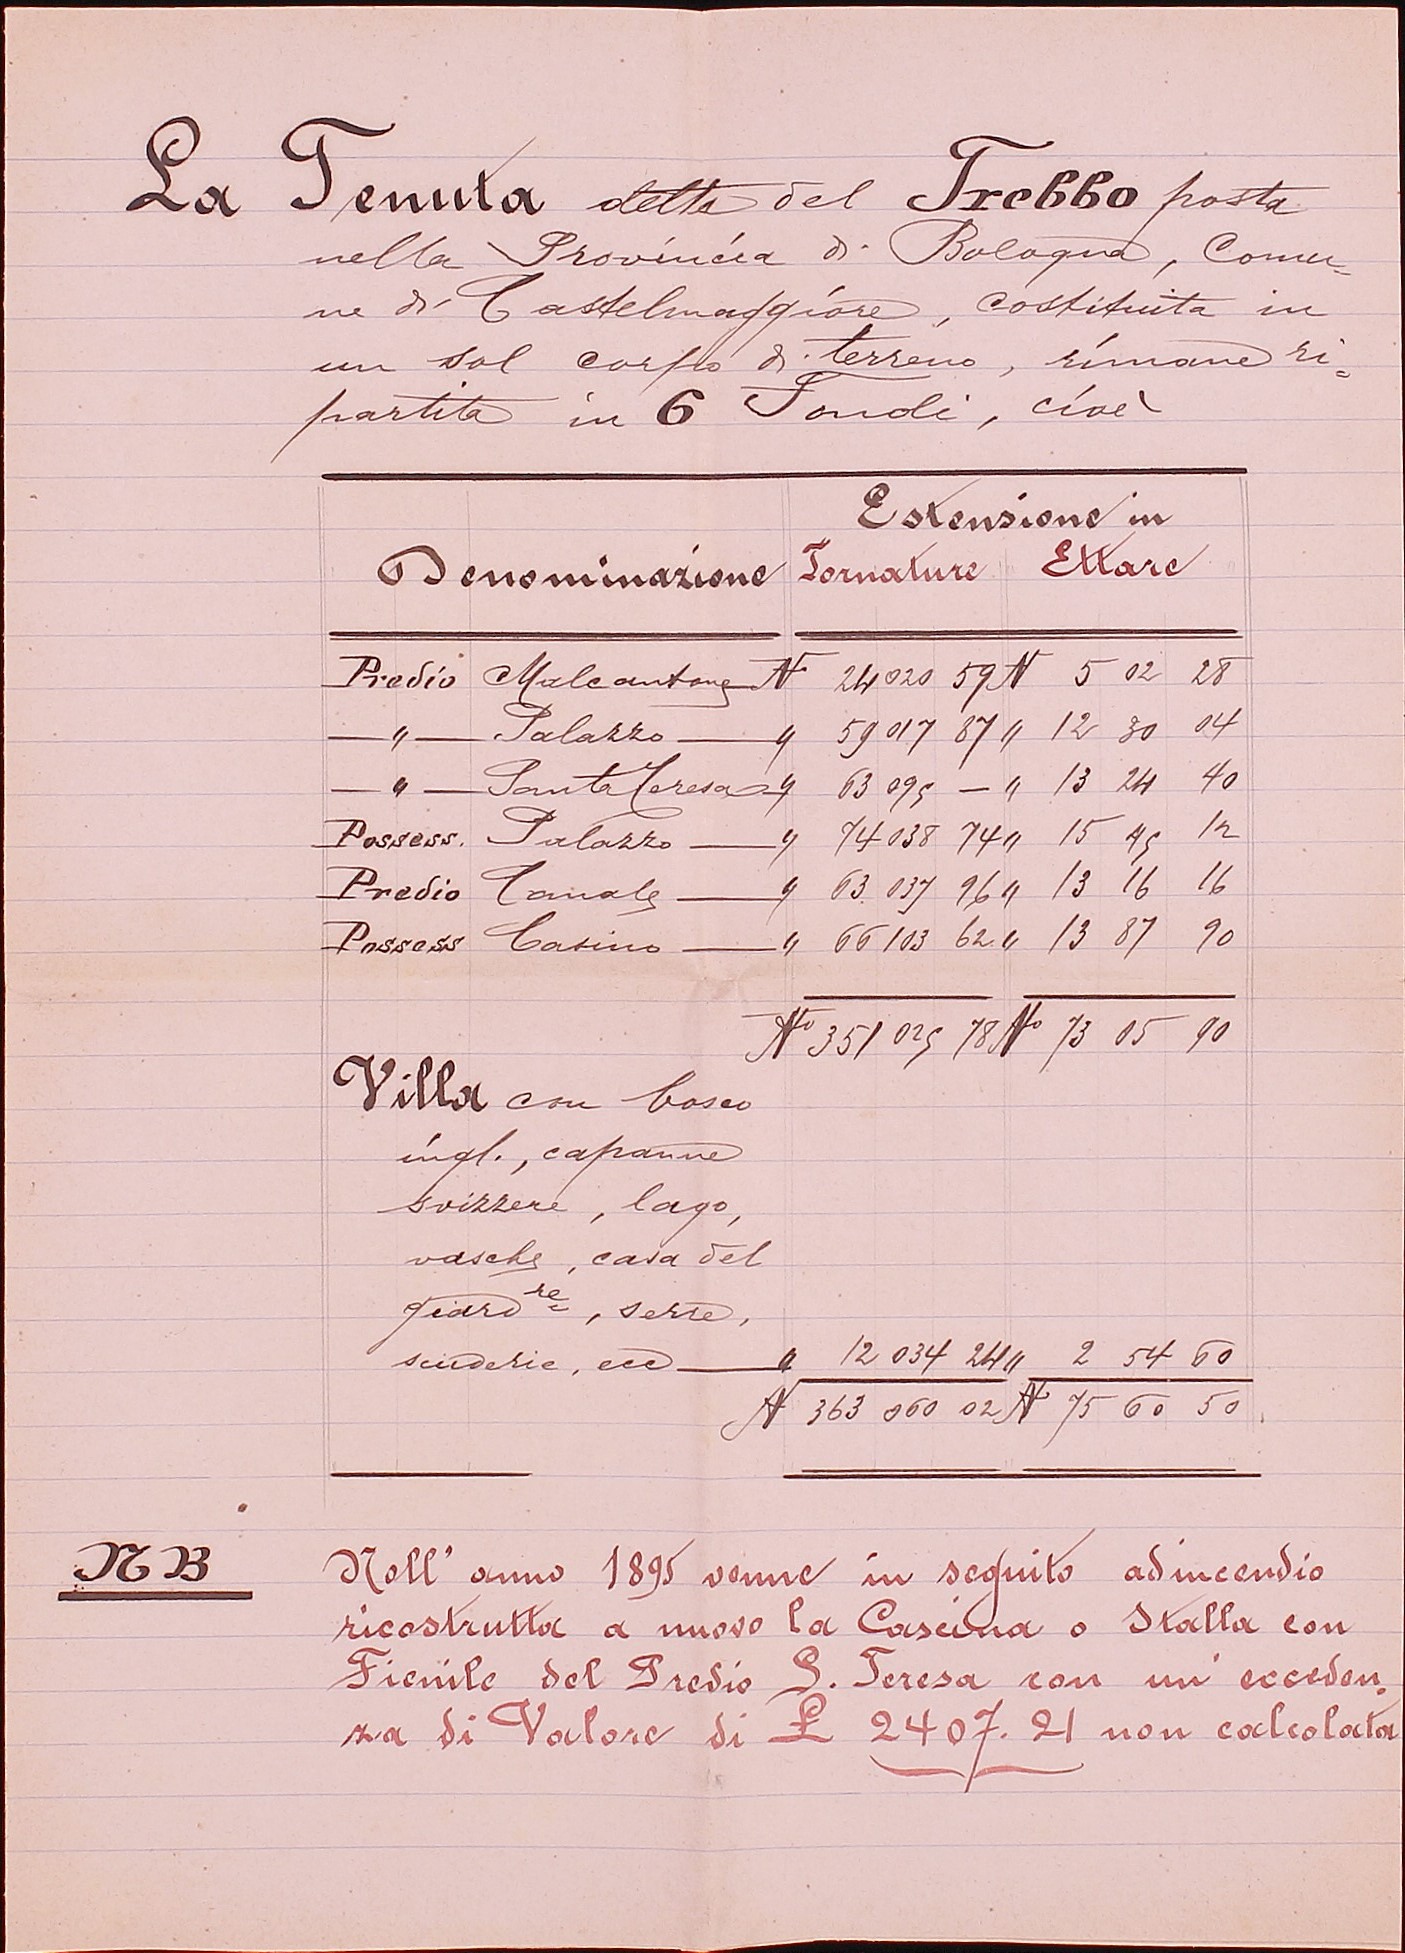 La Tenuta detta del Trebbo posta
nella Provincia di Bologna, Comu-
ne di Castelmaggiore, costituita in
un sol corpo di terreno, rimane ri=
partita in 6 Fondi, cioè
Estensione in
Denominazione Tornature Ettare
Predio Malcantone N° 24 020 59 N° 5 02 28
— " — Palazzo — " 59 017 87 " 12 30 04
— " — Santa Teresa — " 63 095 — " 13 24 40
Possess. Palazzo — " 74 038 74 " 15 45 12
Predio Canale — " 63 037 96 " 13 16 16
Possess Casino — " 66 103 62 " 13 87 90
N° 351 025 78 N° 73 05 90
Villa con bosco
ingl., capanne
svizzere, lago,
vasche, casa del
giard.re, serre,
scuderie, ecc — " 12 034 24 " 2 54 60
N° 363 060 02 N° 75 60 50
NB Nell' anno 1895 venne in seguito ad incendio
ricostrutta a nuovo la Cascina o Stalla con
Fienile del Predio S. Teresa con un' ecceden=
za di Valore di £ 2407.21 non calcolata